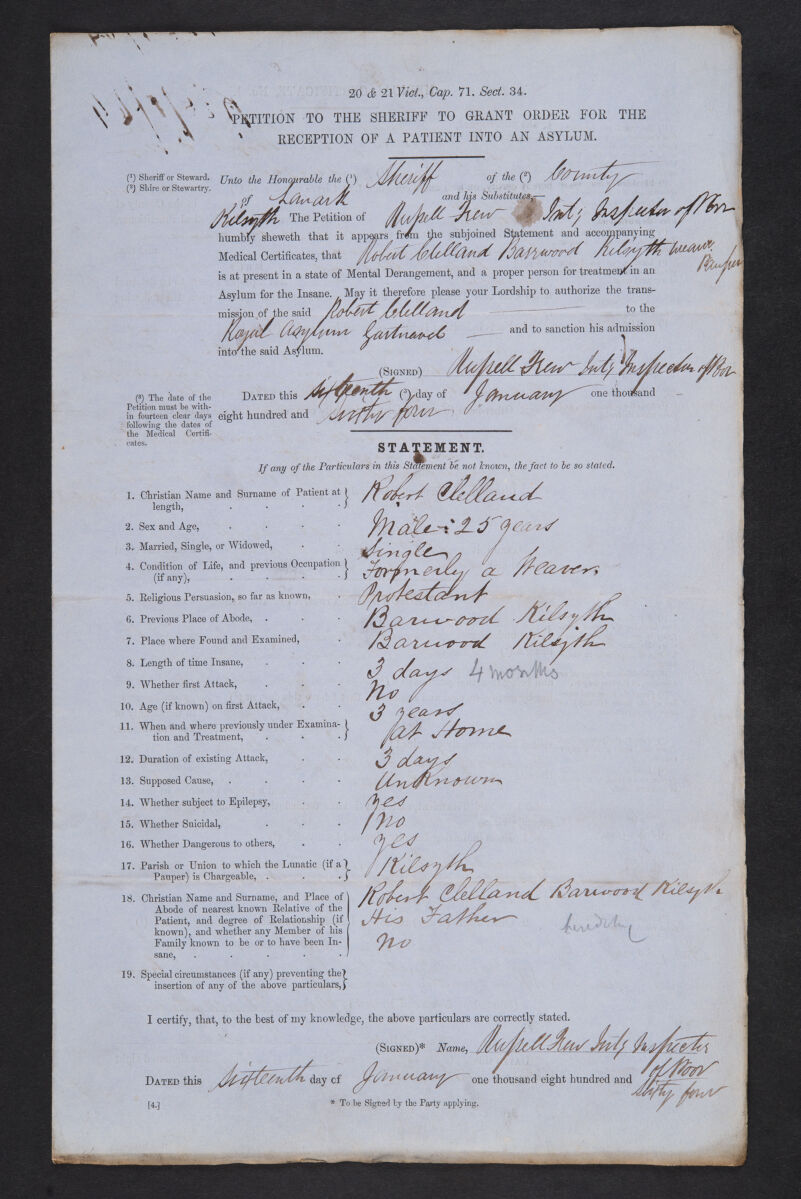 20 & 21 Vict., Cap. 71. Sect. 34.
PETITION TO THE SHERIFF TO GRANT ORDER FOR THE
RECEPTION OF A PATIENT INTO AN ASYLUM.
(¹) Sheriff or Steward.
(²) Shire or Stewartry.
Unto the Honourable the (¹) Sheriff of the (²) County
of Lanark and his Substitutes,—
Kilsyth The Petition of Russell Frew Inspector of Poor
humbly sheweth that it appears from the subjoined Statement and accompanying
Medical Certificates, that Robert Clelland Barrwood Kilsyth weaver
Pauper
is at present in a state of Mental Derangement, and a proper person for treatment in an
Asylum for the Insane. May it therefore please your Lordship to authorize the trans-
mission of the said Robert Clelland to the
Royal Asylum Gartnavel and to sanction his admission
into the said Asylum.
(SIGNED) Russell Frew Inspector of Poor
(³) The date of the
Petition must be with-
in fourteen clear days
following the dates of
the Medical Certifi-
cates.
DATED this sixteenth (³) day of January one thousand
eight hundred and sixty four
STATEMENT.
If any of the Particulars in this Statement be not known, the fact to be so stated.
1. Christian Name and Surname of Patient at
length, Robert Clelland
2. Sex and Age, Male : 25 years
3. Married, Single, or Widowed, Single
4. Condition of Life, and previous Occupation
(if any), Formerly a Weaver.
5. Religious Persuasion, so far as known, Protestant
6. Previous Place of Abode, Barwood Kilsyth
7. Place where Found and Examined, Barwood Kilsyth
8. Length of time Insane, 3 days 4 months
9. Whether first Attack, No
10. Age (if known) on first Attack, 3 years
11. When and where previously under Examina-
tion and Treatment, at Home
12. Duration of existing Attack, 3 days
13. Supposed Cause, Unknown
14. Whether subject to Epilepsy, yes
15. Whether Suicidal, No
16. Whether Dangerous to others, yes
17. Parish or Union to which the Lunatic (if a
Pauper) is Chargeable, Kilsyth
18. Christian Name and Surname, and Place of
Abode of nearest known Relative of the
Patient, and degree of Relationship (if
known), and whether any Member of his
Family known to be or to have been In-
sane,
Robert Clelland Barwood Kilsyth
His Father
hereditary
no
19. Special circumstances (if any) preventing the
insertion of any of the above particulars,
I certify, that, to the best of my knowledge, the above particulars are correctly stated.
(SIGNED)* Name, Russell Frew Inspector
of Poor
DATED this Sixteenth day of January one thousand eight hundred and sixty four
[4.]
* To be Signed by the Party applying.